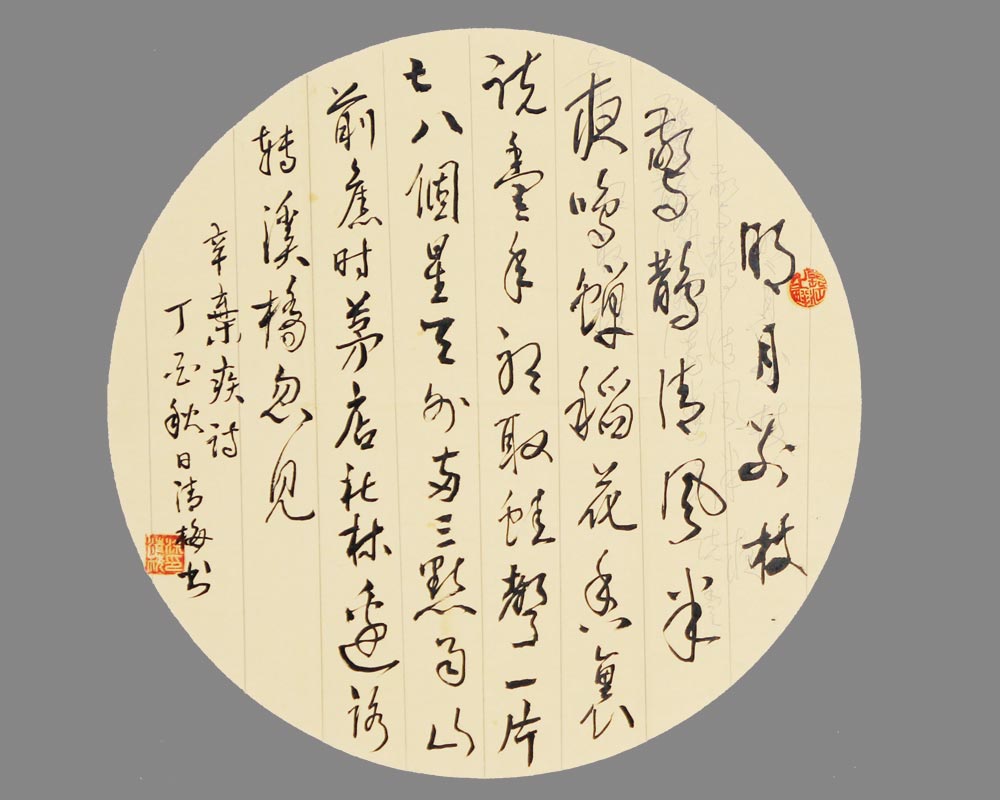 明月别枝
驚鵲清風半
夜鳴蟬稻花香裏
说豐年聽取蛙聲一片
七八個星天外两三點雨山
前舊时茅店社林邊路
轉溪橋忽見
辛棄疾诗
丁酉秋日清梅书